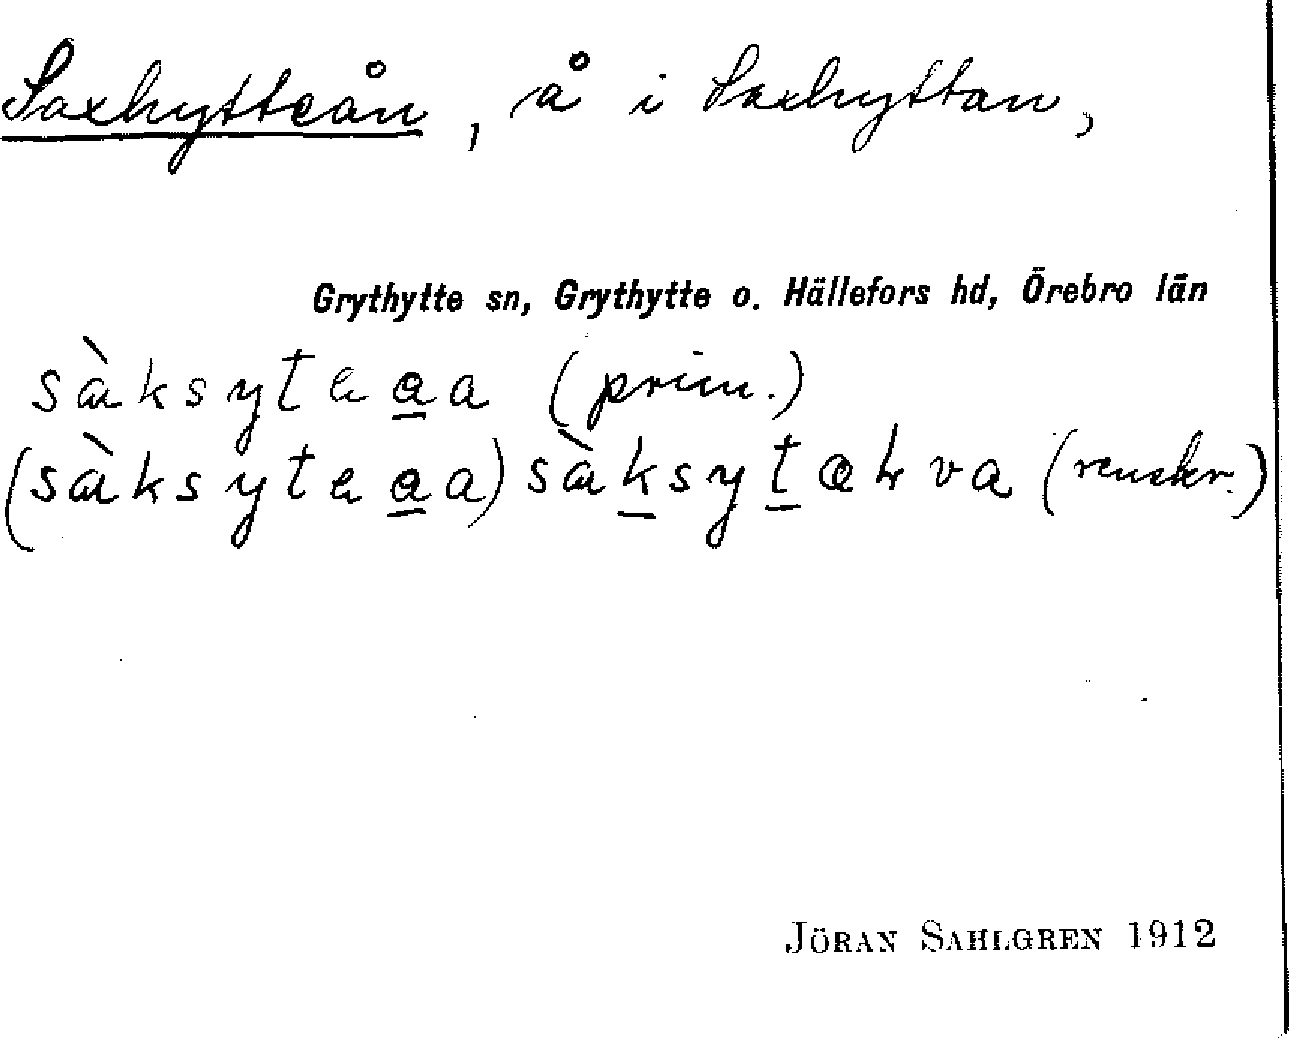 Saxhytteån, å i Saxhyttan,
Grythytte sn, Grythytte o. Hällefors hd, Örebro län
sàksytea̲a (prim.)
(sàksytea̲a) sàk̲syt̲akva (renskr.)
JÖRAN SAHLGREN 1912